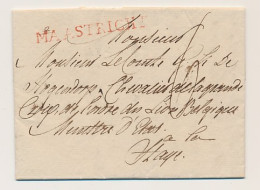 MAESTRICHT
Monsieur
Monsieur le Comte
Hogendorp, Chevalier de la grande
Croix de l'ordre du Lion Belgique
Ministre d'Etat
a la
Haye